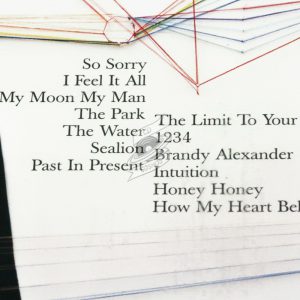 So Sorry
I Feel It All
My Moon My Man
The Park
The Water
Sealion
Past In Present
The Limit To Your
1234
Brandy Alexander
Intuition
Honey Honey
How My Heart Bel